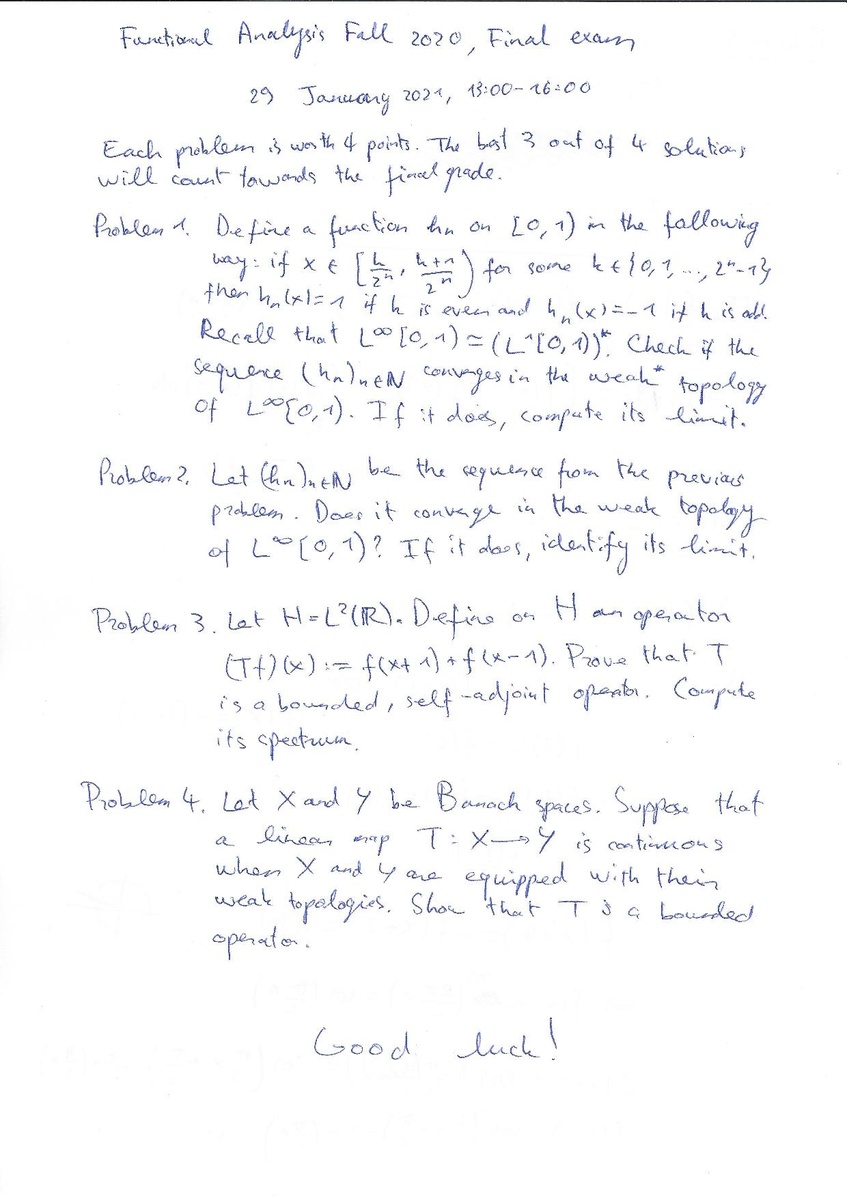 Functional Analysis Fall 2020, Final exam
29 January 2021, 13:00-16:00
Each problem is worth 4 points. The best 3 out of 4 solutions
will count towards the final grade.
Problem 1. Define a function hn on [0,1) in the following
way: if x ∈ [k/2^n, (k+1)/2^n) for some k ∈ {0,1,...,2^n-1}
then h_n(x)=1 if k is even and h_n(x)=-1 if k is odd.
Recall that L^∞[0,1) ≃ (L^1[0,1))*. Check if the
sequence (h_n)_{n∈ℕ} converges in the weak* topology
of L^∞[0,1). If it does, compute its limit.
Problem 2. Let (h_n)_{n∈ℕ} be the sequence from the previous
problem. Does it converge in the weak topology
of L^∞[0,1)? If it does, identify its limit.
Problem 3. Let H=L²(ℝ). Define on H an operator
(Tf)(x) := f(x+1)+f(x-1). Prove that T
is a bounded, self-adjoint operator. Compute
its spectrum.
Problem 4. Let X and Y be Banach spaces. Suppose that
a linear map T: X→Y is continuous
when X and Y are equipped with their
weak topologies. Show that T is a bounded
operator.
Good luck!